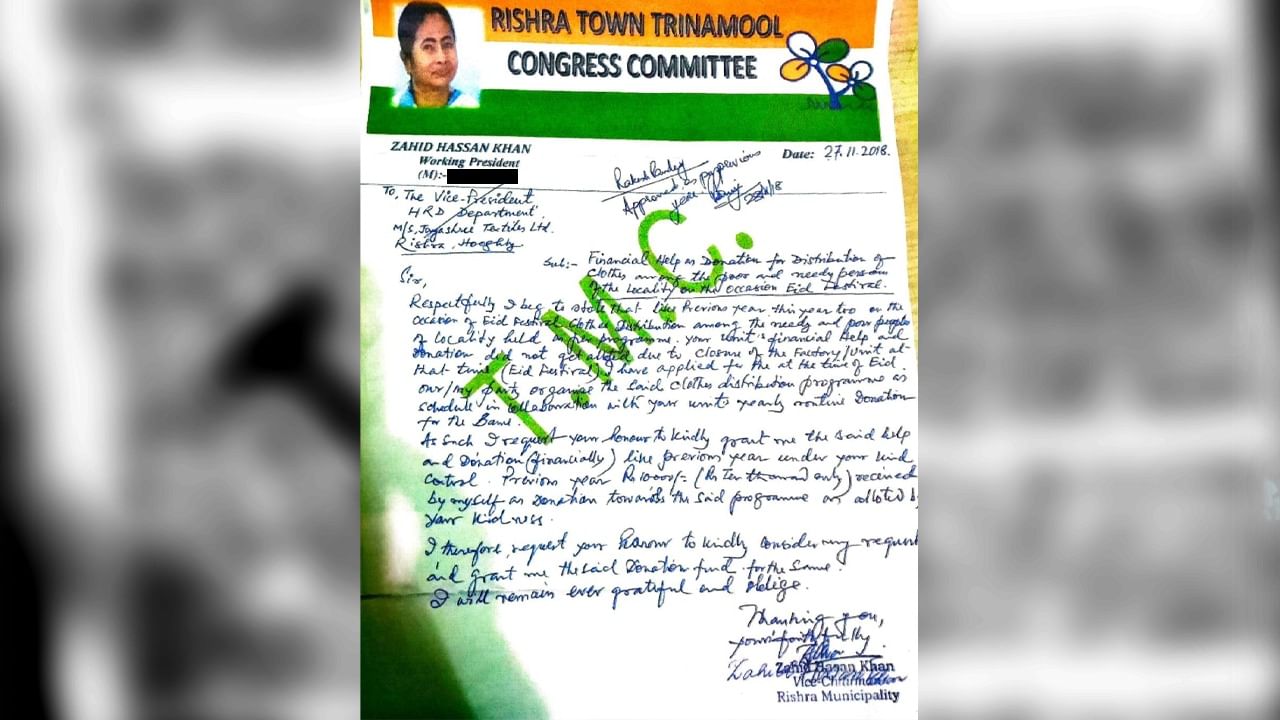 RISHRA TOWN TRINAMOOL
CONGRESS COMMITTEE
ZAHID HASSAN KHAN
Working President
(M):-
Date: 27.11.2018.
Approved as per previous
year.
To, The Vice-President
HRD Department
M/S, Jayashree Textiles Ltd.
Rishra, Hooghly
T.M.C.
Sub:- Financial Help as Donation for Distribution of
Clothes among the poor and needy person
of the Locality on the occasion Eid Festival.
Sir,
Respectfully I beg to state that like Previous year this year too on the
occasion of Eid Festival Clothes Distribution among the needy and poor peoples
of locality held as per programme. your unit's financial Help and
Donation did not get due to Closure of the Factory/Unit at
that time (Eid Festival) I have applied for the at the time of Eid.
our/my part, organise the said clothes distribution programme as
schedule in collaboration with your unit's yearly routine Donation
for the Same.
As such I request your honour to kindly grant me the said help
and Donation (financially) like previous year under your kind
control. Previous year Rs 10000/= (Rs Ten thousand only) received
by myself as Donation towards the said programme as alloted b
your kidness.
I therefore, request your honour to kindly consider my request
and grant me the said Donation fund for the same.
I will remain ever grateful and oblige.
Thanking you,
yours faithfully
Zahid Hasan Khan
Vice-Chairman
Rishra Municipality